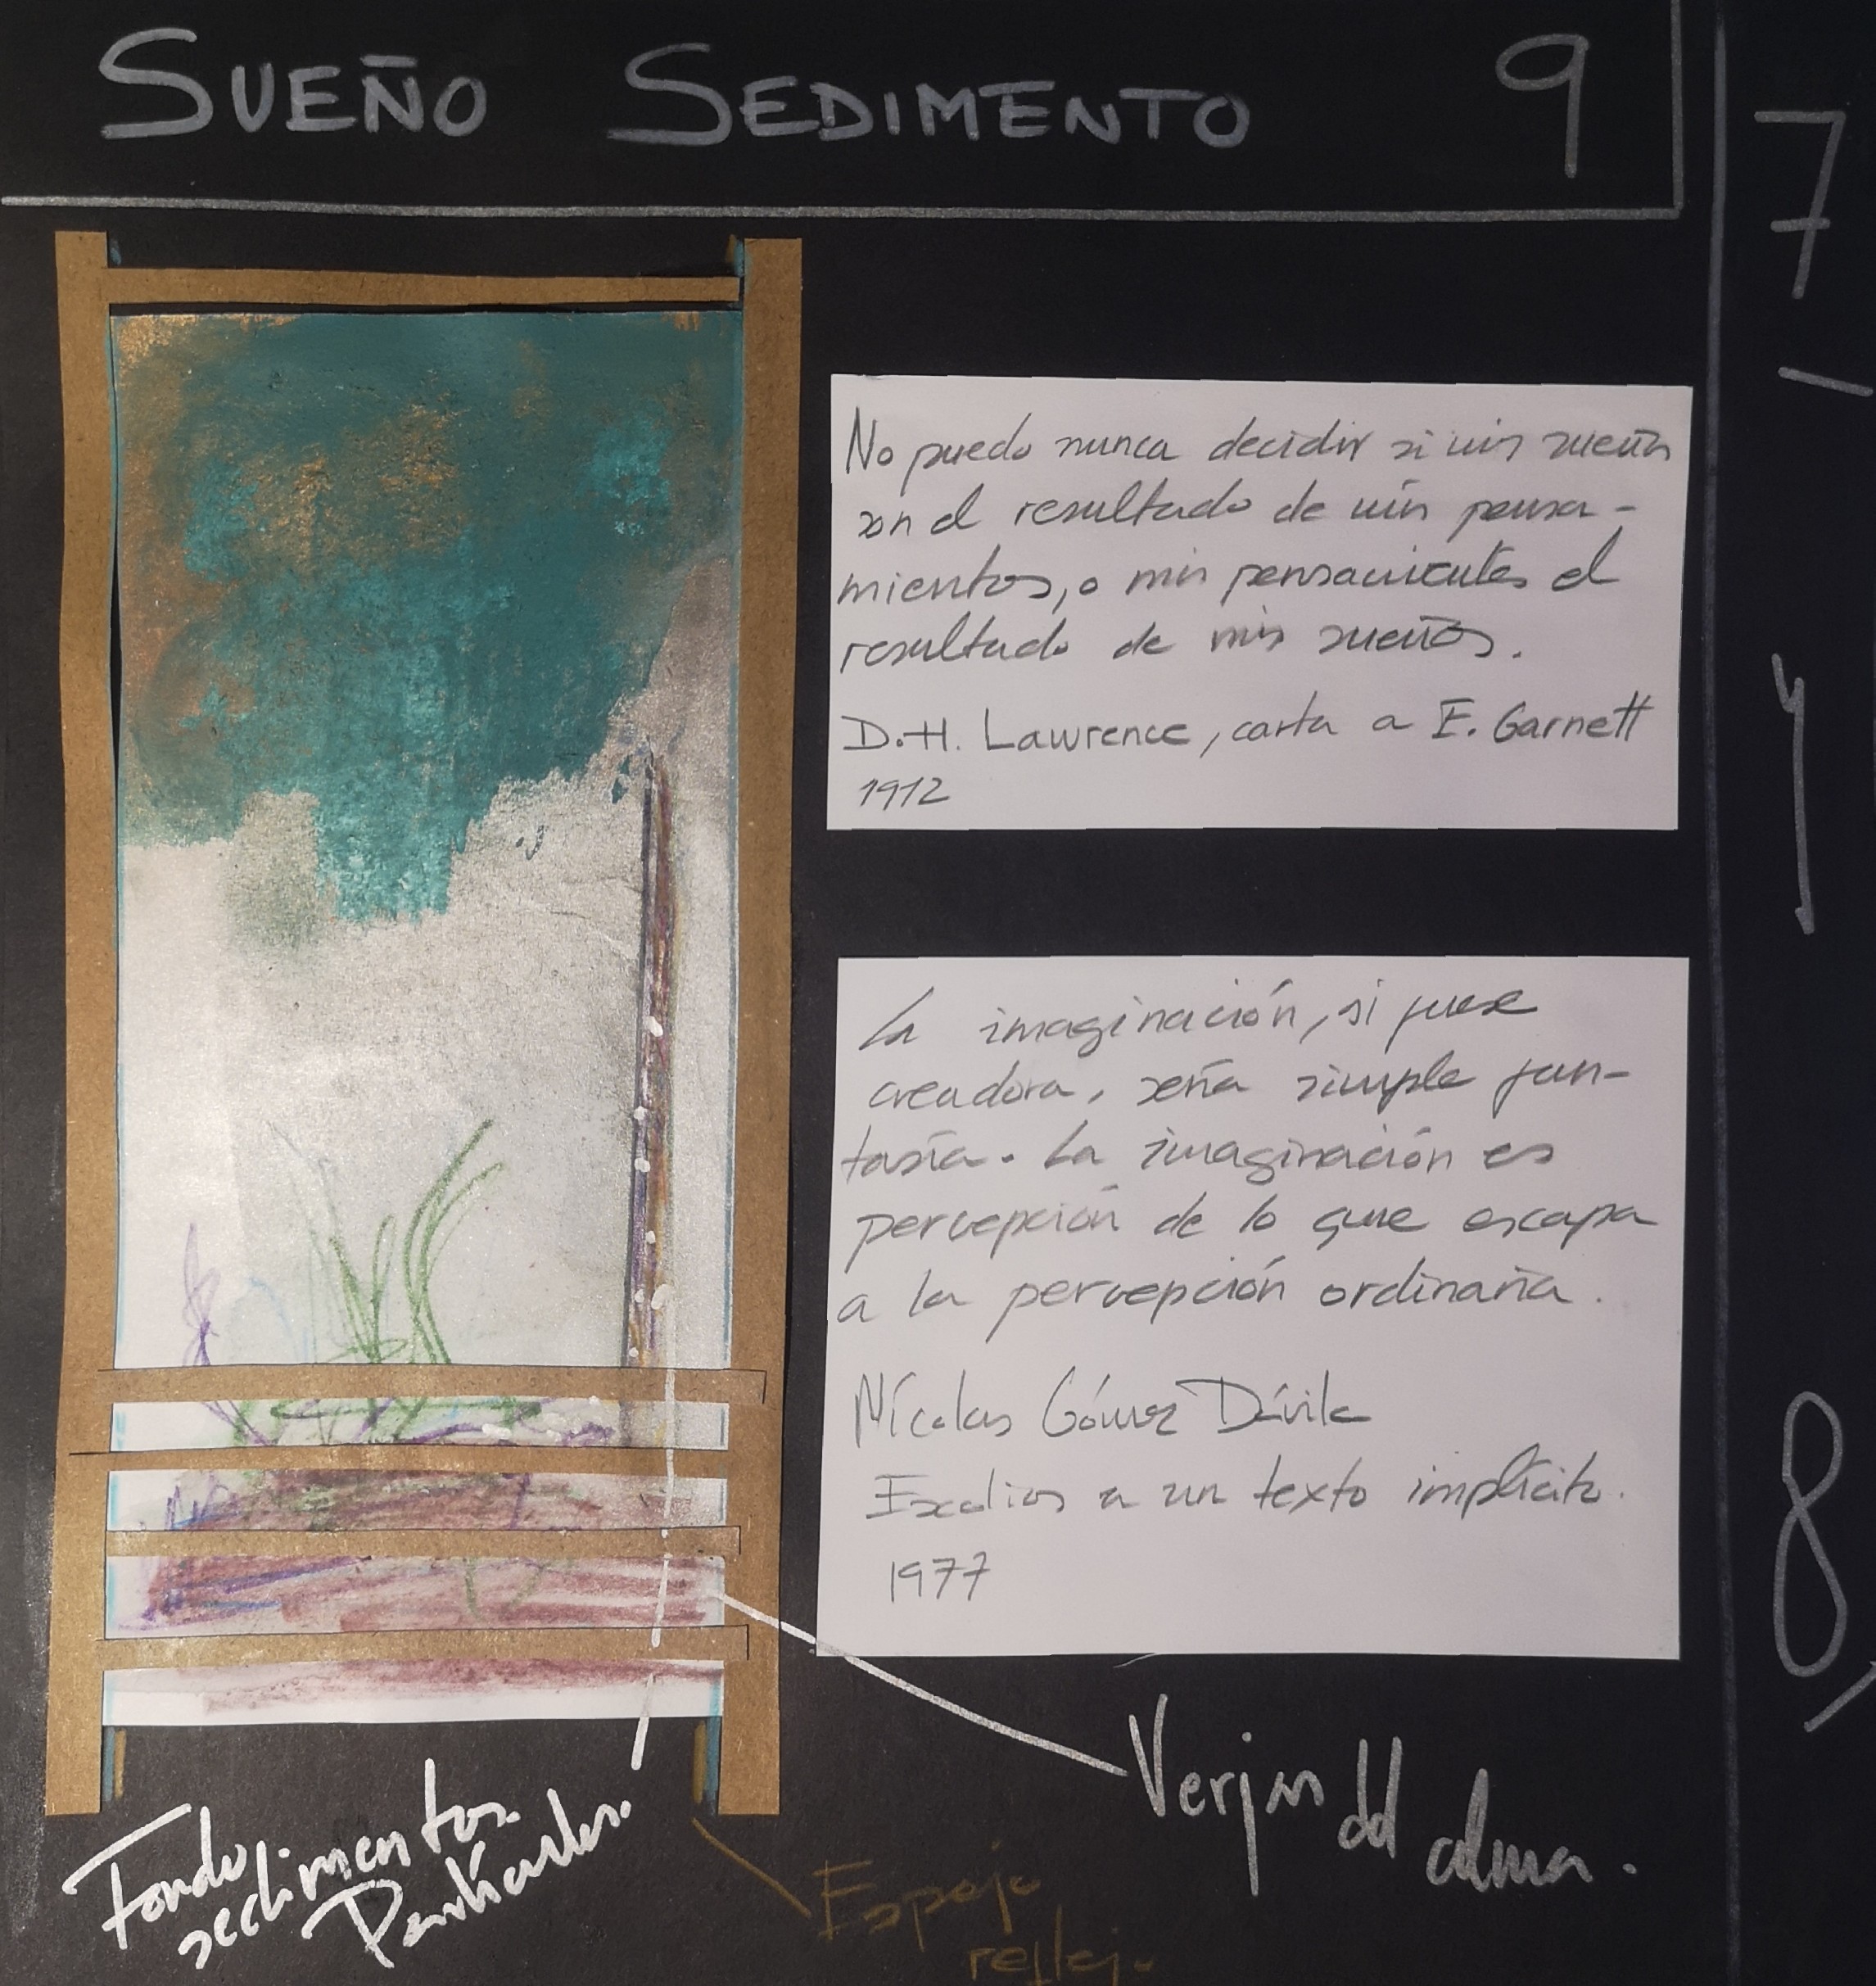 SUEÑO SEDIMENTO 9
No puedo nunca decidir si mis sueños
son el resultado de mis pensa-
mientos, o mis pensamientos el
resultado de mis sueños.
D.H. Lawrence, carta a E. Garnett
1912
La imaginación, si fuese
creadora, sería simple fan-
tasía. La imaginación es
percepción de lo que escapa
a la percepción ordinaria.
Nícolas Gómez Dávila
Escolios a un texto implícito.
1977
Verjas del alma.
Fondo
sedimentos
Partículas.
Espejo
reflejo
7
y
8,